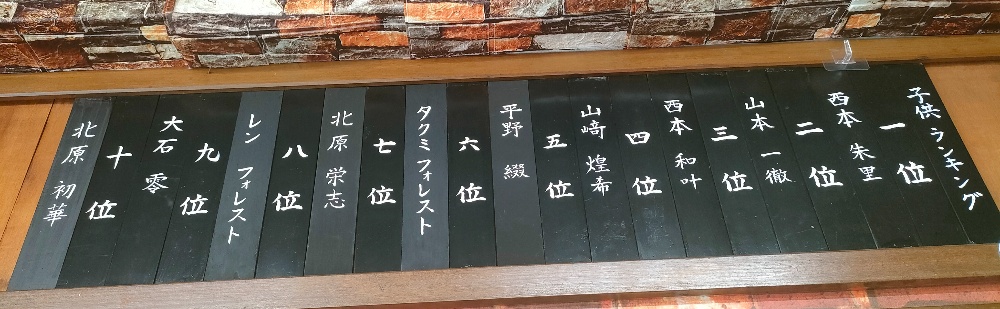 子供ランキング
一位
西本 朱里
二位
山本 一徹
三位
西本 和叶
四位
山﨑 煌希
五位
平野 綴
六位
タクミフォレスト
七位
北原 栄志
八位
レン フォレスト
九位
大石 零
十位
北原 初華